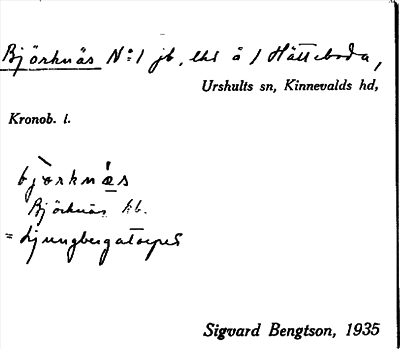 Björknäs No:1 jb, lht å / Hätteboda,
Urshults sn, Kinnevalds hd,
Kronob. l.
björknæs
Björknäs kb.
= Ljungbergatorpet
Sigvard Bengtson, 1935